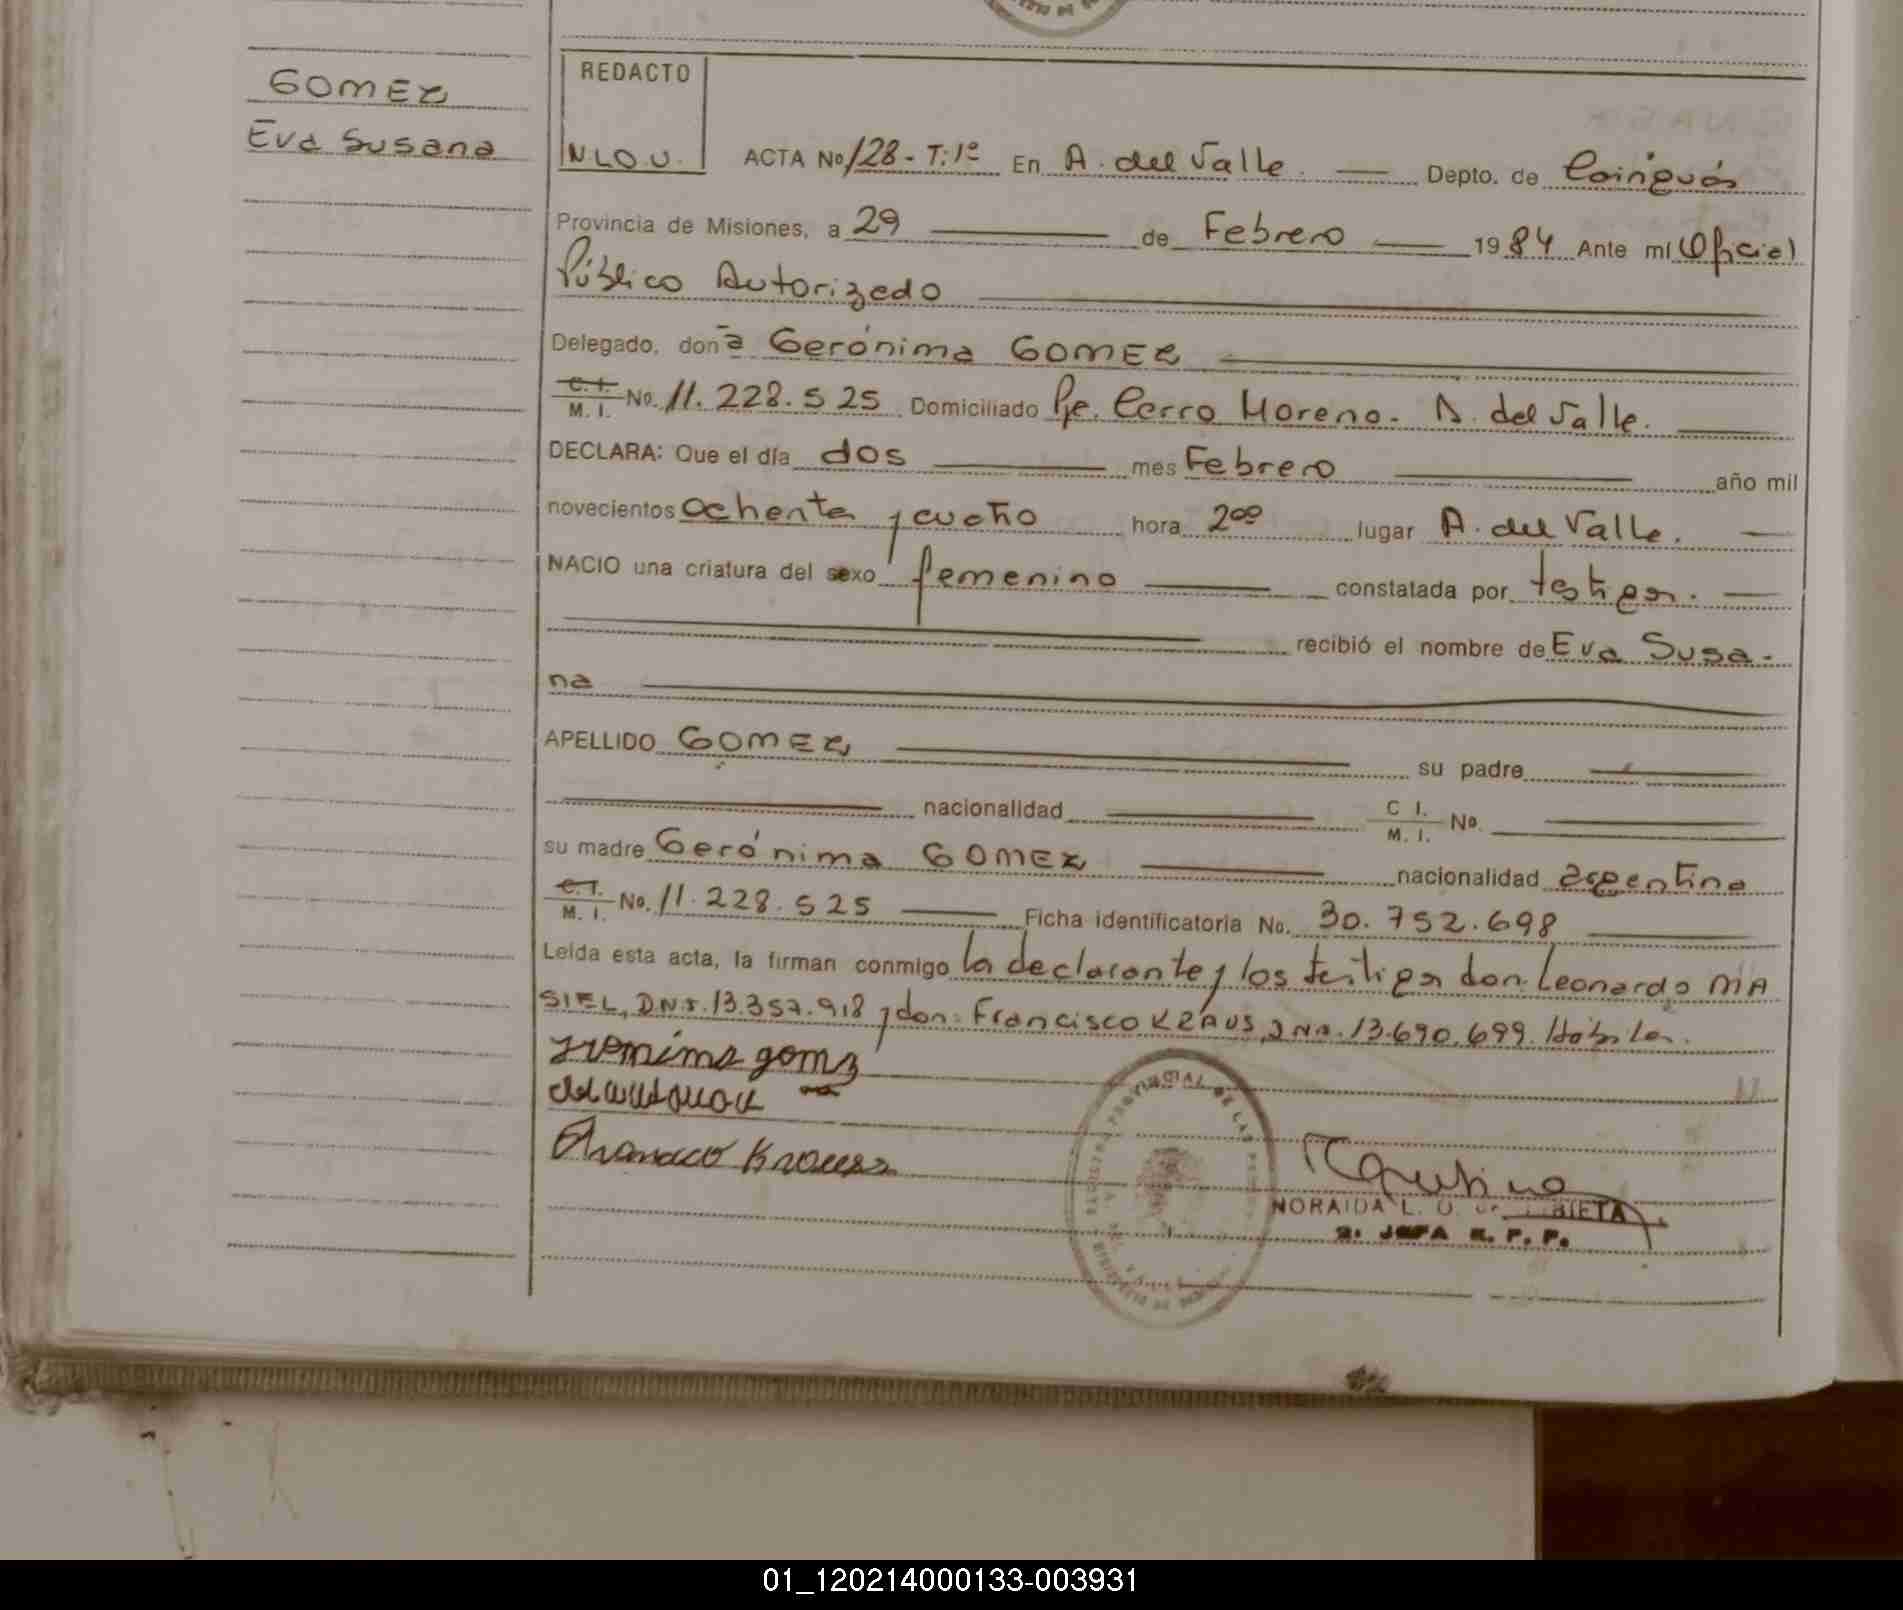 GOMEZ
Eva Susana
REDACTO
N L O U.
ACTA No 128 - T: 1º En A. del Valle. Depto. de Cainguás
Provincia de Misiones, a 29 de Febrero 1984 Ante mí Oficial
Público Autorizado
Delegado, don a Gerónima GOMEZ
C. I. M. I. No. 11.228.525 Domiciliado Pje. Cerro Moreno - A. del Valle.
DECLARA: Que el día dos mes Febrero año mil
novecientos ochenta y cuatro hora 2⁰⁰ lugar A. del Valle.
NACIO una criatura del sexo femenino constatada por testigos.
recibió el nombre de Eva Susa-
na
APELLIDO GOMEZ su padre
nacionalidad C I. M. I. No.
su madre Gerónima GOMEZ nacionalidad argentina
C. I. M. I. No. 11.228.525 Ficha identificatoria No. 30.752.698
Leída esta acta, la firman conmigo la declarante y los testigos don: Leonardo MA
SIEL, D.N.I. 13.357.918 y don: Francisco KRAUS, D.N.I. 13.690.699. Hábiles.
gomz
NORAIDA L. O. de
2. JEFA R. P. P.
01_120214000133-003931